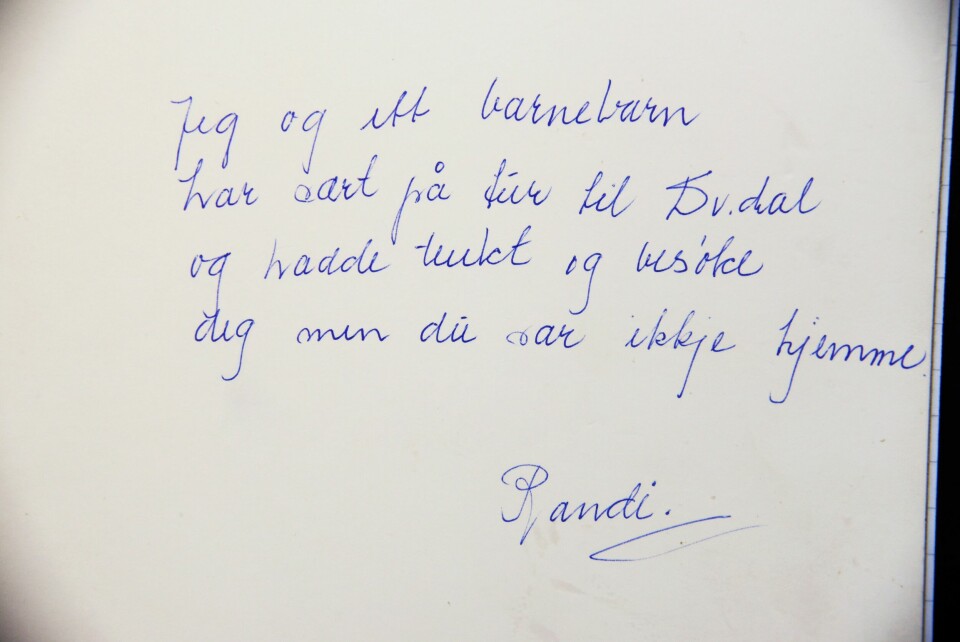 Jeg og ett barnebarn
har vært på tur til Dv.dal
og hadde tenkt og besøke
deg men du var ikkje hjemme.
Randi.